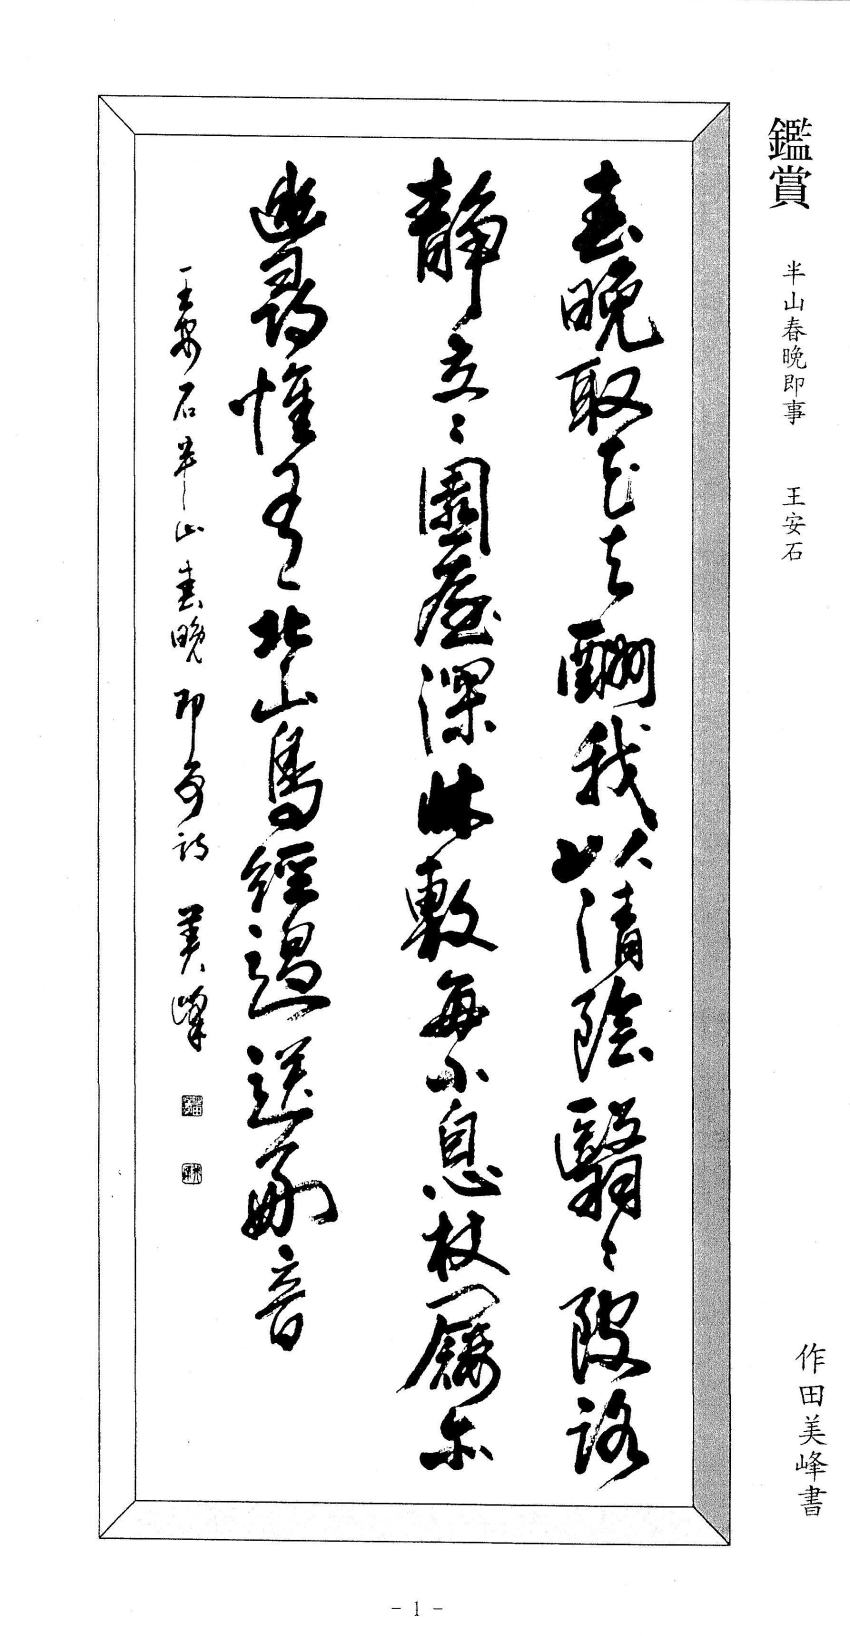 鑑賞 半山春晚即事 王安石 作田美峰書
春晚取花去酬我以清陰翳〻陂路
静交〻園屋深牀敷毎小息杖屨亦
幽尋惟有北山鳥經過送好音
王安石半山春晚即事詩 美峰
- 1 -